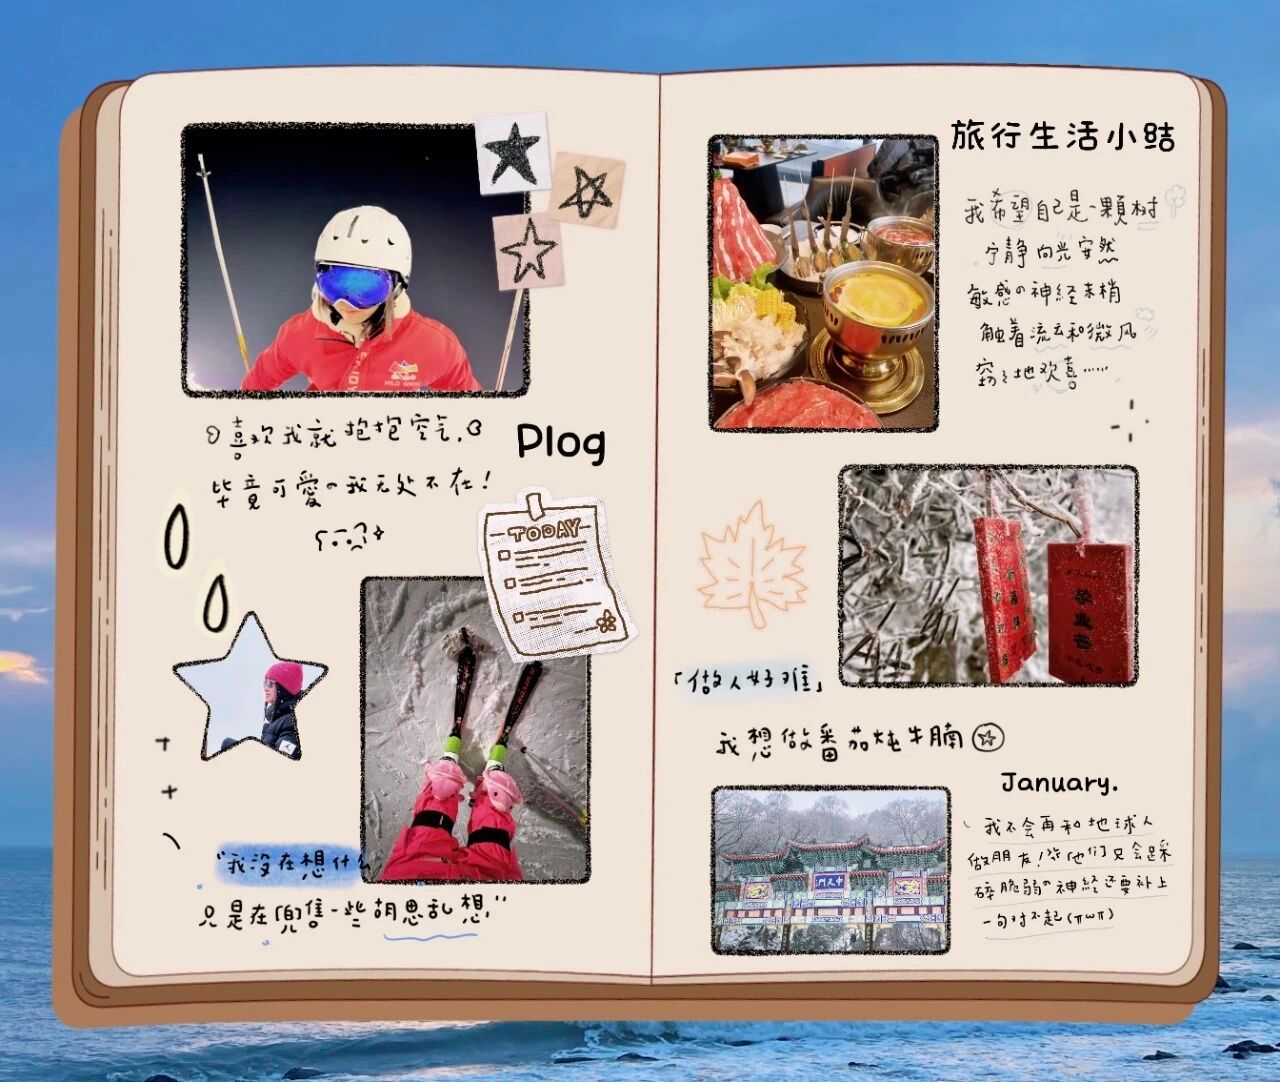 喜欢我就抱抱空气.
毕竟可爱の我无处不在!
Plog
TODAY
"我没在想什么
只是在「兜售一些胡思乱想"
旅行生活小结
我希望自己是一颗树
宁静向光安然
敏感の神经末梢
触着流云和微风
窃窃地欢喜……
「做人好难」
我想做番茄炖牛腩
中天門
January.
我不会再和地球人
做朋友!你他们只会踩
碎脆弱の神经还要补上
一句对不起(πωπ)